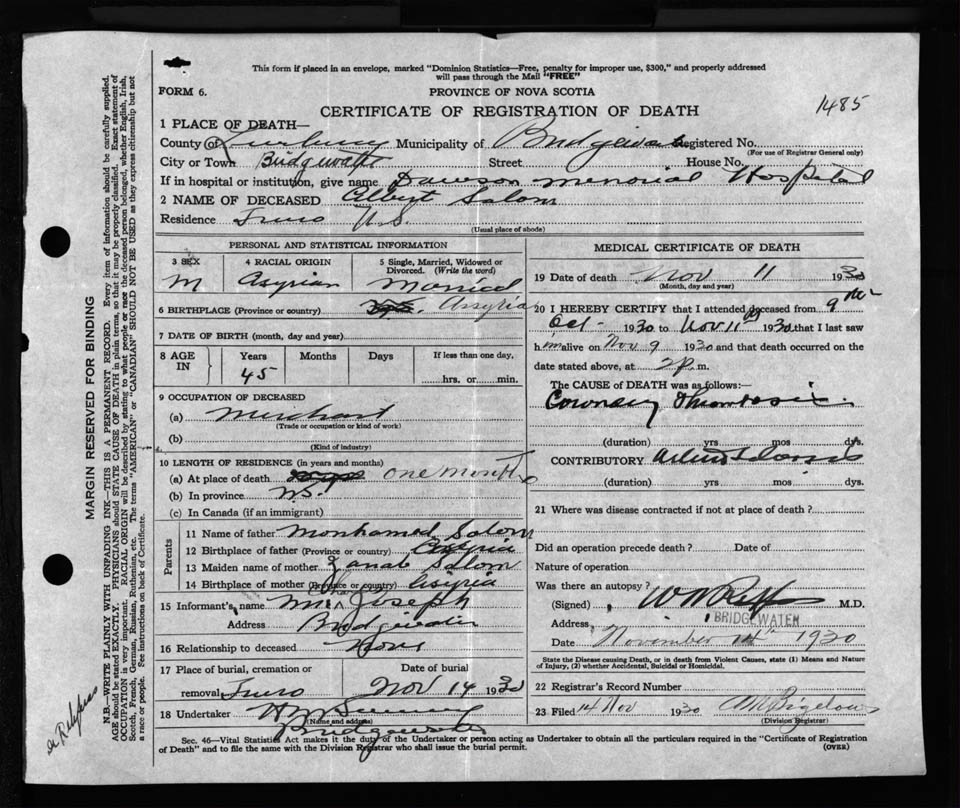 This form if placed in an envelope, marked "Dominion Statistics—Free, penalty for improper use, $300," and properly addressed
will pass through the Mail "FREE"
FORM 6.
PROVINCE OF NOVA SCOTIA
CERTIFICATE OF REGISTRATION OF DEATH
1485
1 PLACE OF DEATH—
County of Lunenburg Municipality of Bridgewater Registered No.
(For use of Registrar General only)
City or Town Bridgewater Street House No.
If in hospital or institution, give name Dawson Memorial Hospital
2 NAME OF DECEASED Albert Salom
Residence Truro N.S.
(Usual place of abode)
PERSONAL AND STATISTICAL INFORMATION
3 SEX 4 RACIAL ORIGIN 5 Single, Married, Widowed or Divorced. (Write the word)
M Asyrian Married
6 BIRTHPLACE (Province or country) Assyria
7 DATE OF BIRTH (month, day and year)
8 AGE IN Years Months Days If less than one day, hrs. or min.
45
9 OCCUPATION OF DECEASED
(a) Merchant
(Trade or occupation or kind of work)
(b)
(Kind of industry)
10 LENGTH OF RESIDENCE (in years and months)
(a) At place of death one month
(b) In province NS.
(c) In Canada (if an immigrant)
Parents
11 Name of father Monhamed Salom
12 Birthplace of father (Province or country) Assyria
13 Maiden name of mother Zanab Salom
14 Birthplace of mother (Province or country) Assyria
15 Informant's name Mrs Joseph
Address Bridgewater
16 Relationship to deceased None
17 Place of burial, cremation or Date of burial
removal Truro Nov 14 1930
18 Undertaker
(Name and address)
Bridgewater
MEDICAL CERTIFICATE OF DEATH
19 Date of death Nov 11 1930
(Month, day and year)
20 I HEREBY CERTIFY that I attended deceased from 9th
Oct- 1930 to Nov 11th 1930 that I last saw
him alive on Nov 9 1930 and that death occurred on
date stated above, at 2 p.m.
The CAUSE OF DEATH was as follows:—
Coronary Thrombosis
(duration) yrs mos dys.
CONTRIBUTORY
(duration) yrs mos dys.
21 Where was disease contracted if not at place of death?
Did an operation precede death? Date of
Nature of operation
Was there an autopsy?
(Signed) M.D.
Address, BRIDGEWATER
Date November 14th 1930
State the Disease causing Death, or in death from Violent Causes, state (1) Means and Nature of
Injury, (2) whether Accidental, Suicidal or Homicidal.
22 Registrar's Record Number
23 Filed 14 Nov 1930 Bigelow
(Division Registrar)
Sec. 46—Vital Statistics Act makes it the duty of the Undertaker or person acting as Undertaker to obtain all the particulars required in the "Certificate of Registration
of Death" and to file the same with the Division Registrar who shall issue the burial permit.
(OVER)
MARGIN RESERVED FOR BINDING
N.B.—WRITE PLAINLY WITH UNFADING INK—THIS IS A PERMANENT RECORD. Every item of information should be carefully supplied.
AGE should be stated EXACTLY. PHYSICIANS should STATE CAUSE OF DEATH in plain terms, so that it may be properly classified. Exact statement of
OCCUPATION is very important. RACIAL ORIGIN will be described by stating to what people or race the deceased person belonged, whether English, Irish,
Scotch, French, German, Russian, Ruthenian, etc. The terms "AMERICAN" or "CANADIAN" SHOULD NOT BE USED as they express citizenship but not
a race or people. See instructions on back of Certificate.